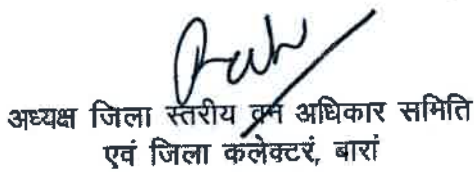 अध्यक्ष जिला स्तरीय वन अधिकार समिति
एवं जिला कलेक्टर, बारां